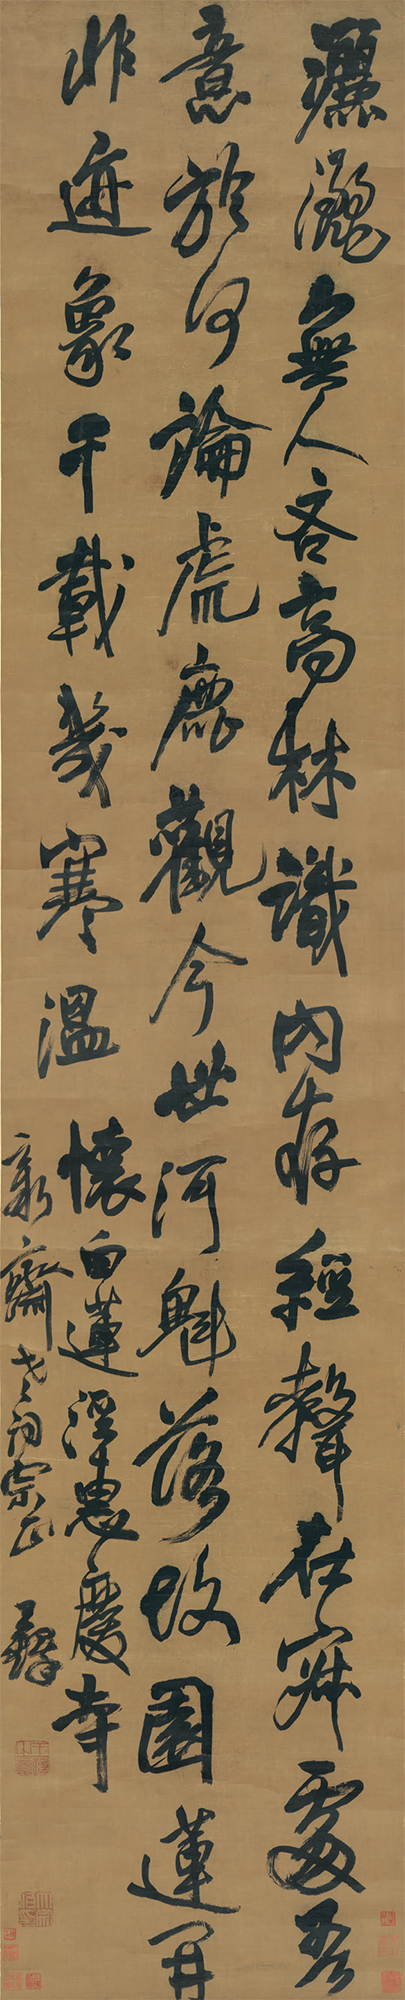 無人吝高林識內存經聲在寂處吾
意於何論虎鹿觀今世河魁落故園蓮開
非迹象千載幾寒溫 懷白蓮涇惠慶寺
新齋老詞宗正 王鐸